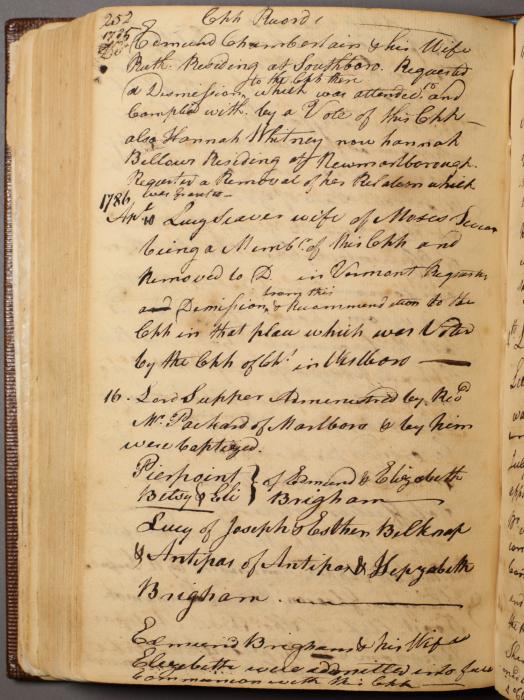 252 Chh Records
1785
Edmund Chamberlain & his Wife
Ruth. Residing at Southboro. Requested
to the Chh there
a Dismission, which was attended to and
Complied with. by a Vote of this Chh —
also Hannah Whitney now hannah
Bellows Residing at Newmarlborough.
Requested a Removal of her Relation which
was granted —
1786
Apr. 10 Lucy Seaver wife of Moses Seaver
being a Memb.r of this Chh and
Removed to D in Vermont Requests
from this
a Dismission & Recommendation to the
Chh in that place which was Voted
by the Chh of Cht in Westboro —
16. Lord Supper Administred by Revd
Mr. Packard of Marlboro & by him
were baptized.
Pierpoint } of Edmund & Elizabeth
Betsy & Eli } Brigham —
Lucy of Joseph & Esther Belknap
& Antipas of Antipas & Hepzabeth
Brigham. —
Edmund Brigham & his Wife
Elizebeth were admitted into full
Communion with this Chh